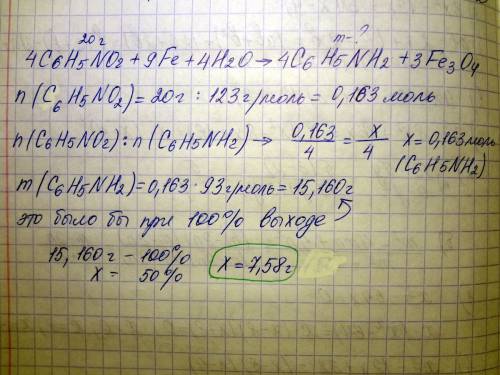 20г m-?
4C6H5NO2 + 9Fe + 4H2O → 4C6H5NH2 + 3Fe3O4
n(C6H5NO2) = 20г : 123г/моль = 0,163 моль
n(C6H5NO2) : n(C6H5NH2) → 0,163/4 = x/4 x = 0,163 моль
(C6H5NH2)
m(C6H5NH2) = 0,163 · 93г/моль = 15,160г
это было бы при 100% выходе
15,160г – 100%
x – 50% x = 7,58г